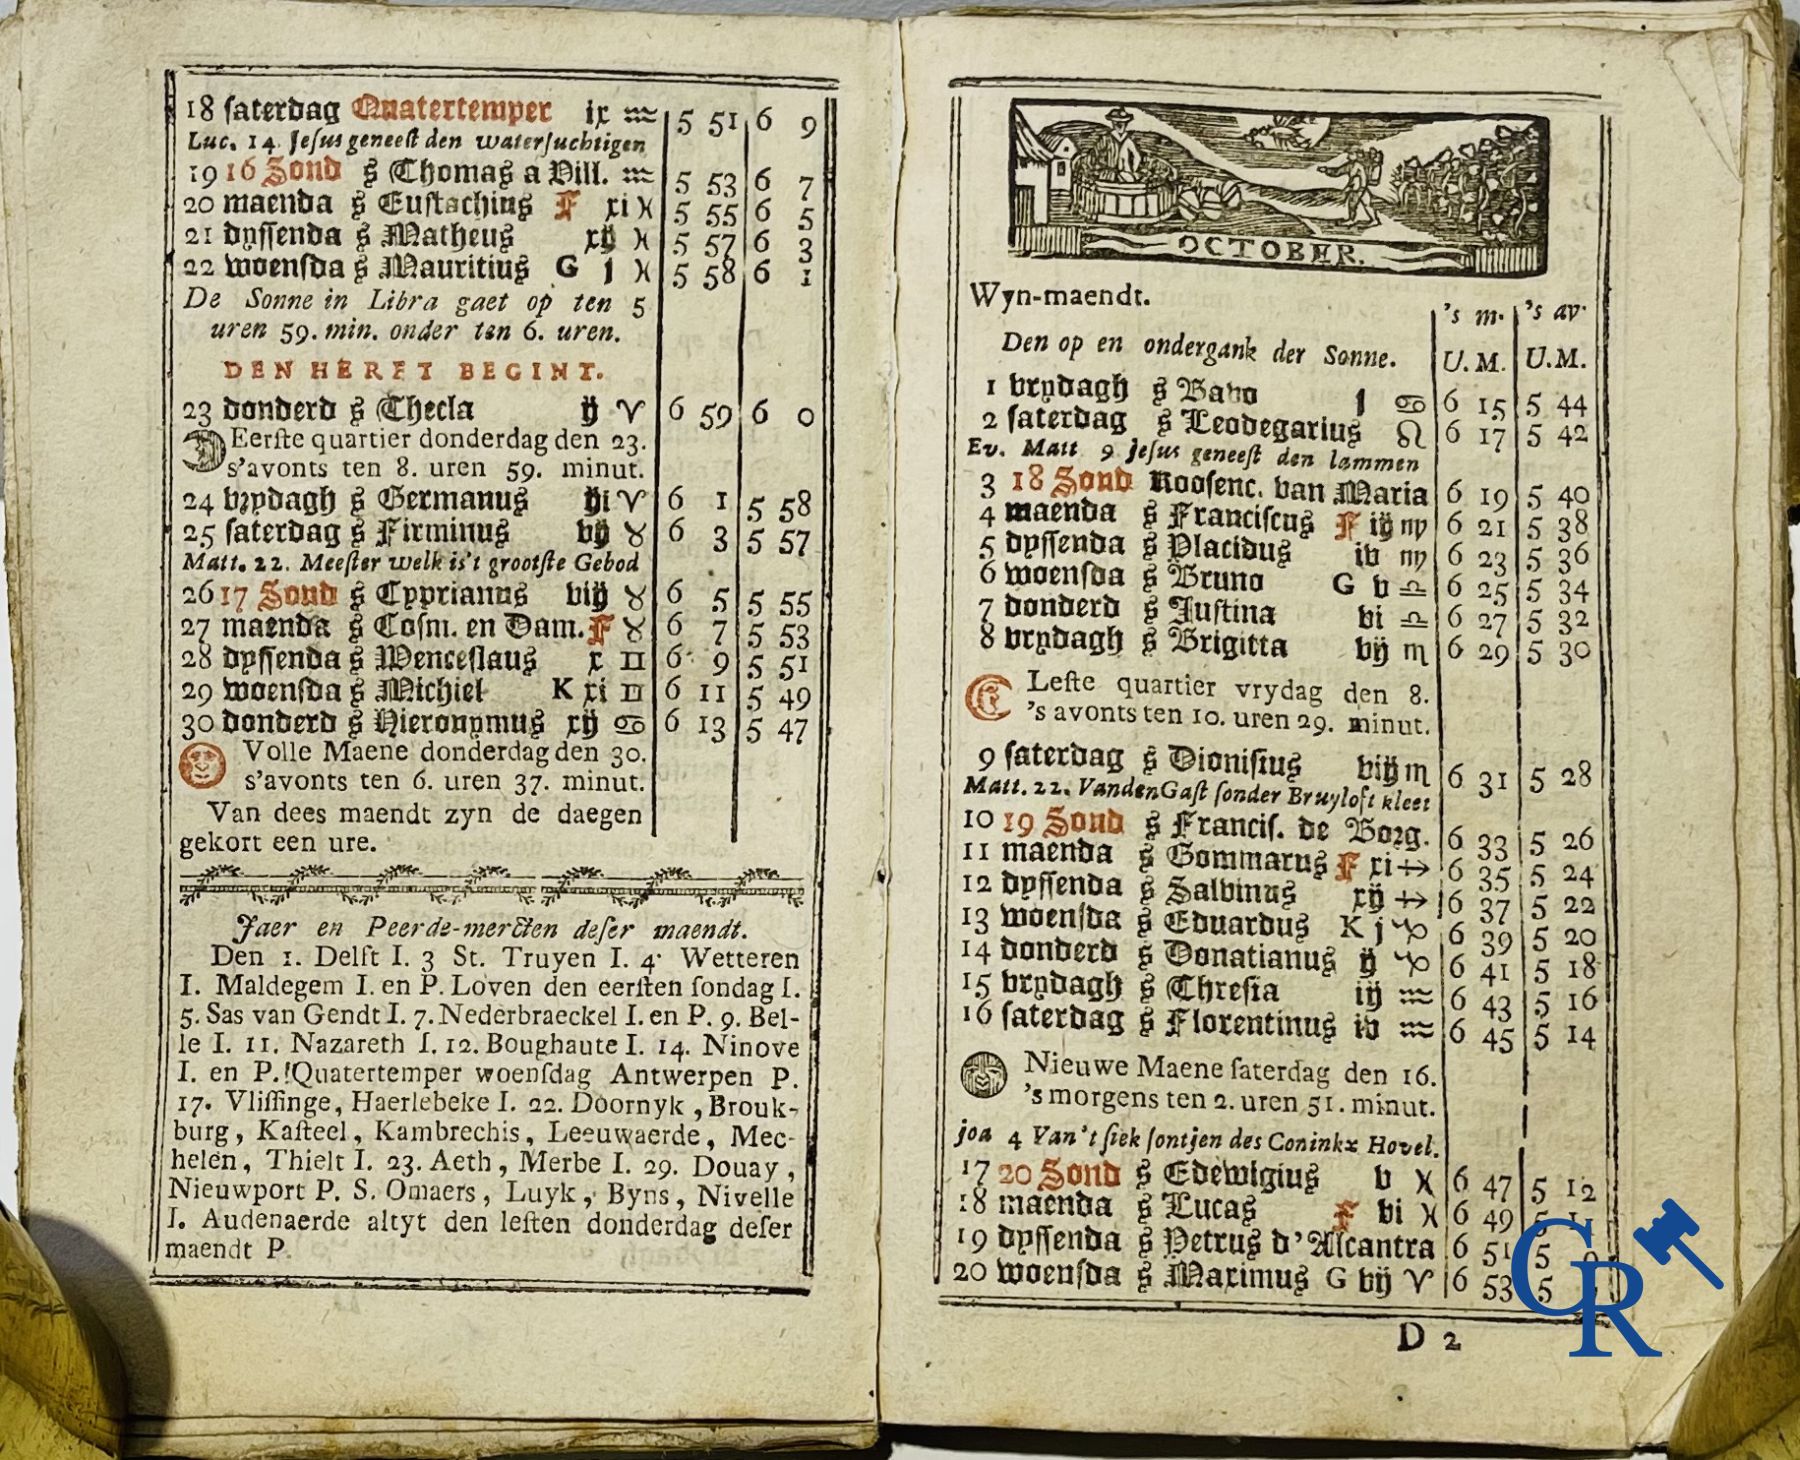 18 saterdag Quatertemper ix ♒ 5 51 6 9
Luc. 14. Jesus geneest den watersuchtigen
19 16 Sond s Thomas a Vill. ♒ 5 53 6 7
20 maenda s Eustachius F xi ♓ 5 55 6 5
21 dyssenda s Matheus xij ♓ 5 57 6 3
22 woensda s Mauritius G j ♓ 5 58 6 1
De Sonne in Libra gaet op ten 5
uren 59. min. onder ten 6. uren.
DEN HERFT BEGINT.
23 donderd s Thecla ij ♈ 6 59 6 0
Eerste quartier donderdag den 23.
s'avonts ten 8. uren 59. minut.
24 vrydagh s Germanus iij ♈ 6 1 5 58
25 saterdag s Firminus vij ♉ 6 3 5 57
Matt. 22. Meester welk is't grootste Gebod
26 17 Sond s Cyprianus viij ♉ 6 5 5 55
27 maenda s Cosm. en Dam. F ♉ 6 7 5 53
28 dyssenda s Wenceslaus x ♊ 6 9 5 51
29 woensda s Michiel K xi ♊ 6 11 5 49
30 donderd s Hieronymus xij ♋ 6 13 5 47
Volle Maene donderdag den 30.
s'avonts ten 6. uren 37. minut.
Van dees maendt zyn de daegen
gekort een ure.
Jaer en Peerde-mercten deser maendt.
Den 1. Delft I. 3 St. Truyen I. 4. Wetteren
I. Maldegem I. en P. Loven den eersten sondag I.
5. Sas van Gendt I. 7. Nederbraeckel I. en P. 9. Bel-
le I. 11. Nazareth I. 12. Boughaute I. 14. Ninove
I. en P. Quatertemper woensdag Antwerpen P.
17. Vlissinge, Haerlebeke I. 22. Doornyk, Brouk-
burg, Kasteel, Kambrechis, Leeuwaerde, Mec-
helen, Thielt I. 23. Aeth, Merbe I. 29. Douay,
Nieuwport P. S. Omaers, Luyk, Byns, Nivelle
I. Audenaerde altyt den lesten donderdag deser
maendt P.
OCTOBER.
Wyn-maendt.
's m. 's av.
Den op en ondergank der Sonne. U. M. U. M.
1 vrydagh s Bavo j ♋ 6 15 5 44
2 saterdag s Leodegarius ♌ 6 17 5 42
Ev. Matt 9 Jesus geneest den lammen
3 18 Sond Roosenc. van Maria 6 19 5 40
4 maenda s Franciscus F iij ♍ 6 21 5 38
5 dyssenda s Placidus iv ♍ 6 23 5 36
6 woensda s Bruno G v ♎ 6 25 5 34
7 donderd s Justina vi ♎ 6 27 5 32
8 vrydagh s Brigitta vij ♏ 6 29 5 30
Leste quartier vrydag den 8.
's avonts ten 10. uren 29. minut.
9 saterdag s Dionisius viij ♏ 6 31 5 28
Matt. 22. Van den Gast sonder Bruyloft kleet
10 19 Sond s Francis. de Borg. 6 33 5 26
11 maenda s Gommarus F xi ♐ 6 35 5 24
12 dyssenda s Salvinus xij ♐ 6 37 5 22
13 woensda s Eduardus K j ♑ 6 39 5 20
14 donderd s Donatianus ij ♑ 6 41 5 18
15 vrydagh s Thresia iij ♒ 6 43 5 16
16 saterdag s Florentinus iv ♒ 6 45 5 14
Nieuwe Maene saterdag den 16.
's morgens ten 2. uren 51. minut.
joa 4 Van't siek sontjen des Coninkx Hovel.
17 20 Sond s Edewigius v ♓ 6 47 5 12
18 maenda s Lucas F vi ♓ 6 49 5
19 dyssenda s Petrus d'Alcantra 6 51 5
20 woensda s Maximus G vij ♈ 6 53 5
D 2
CR